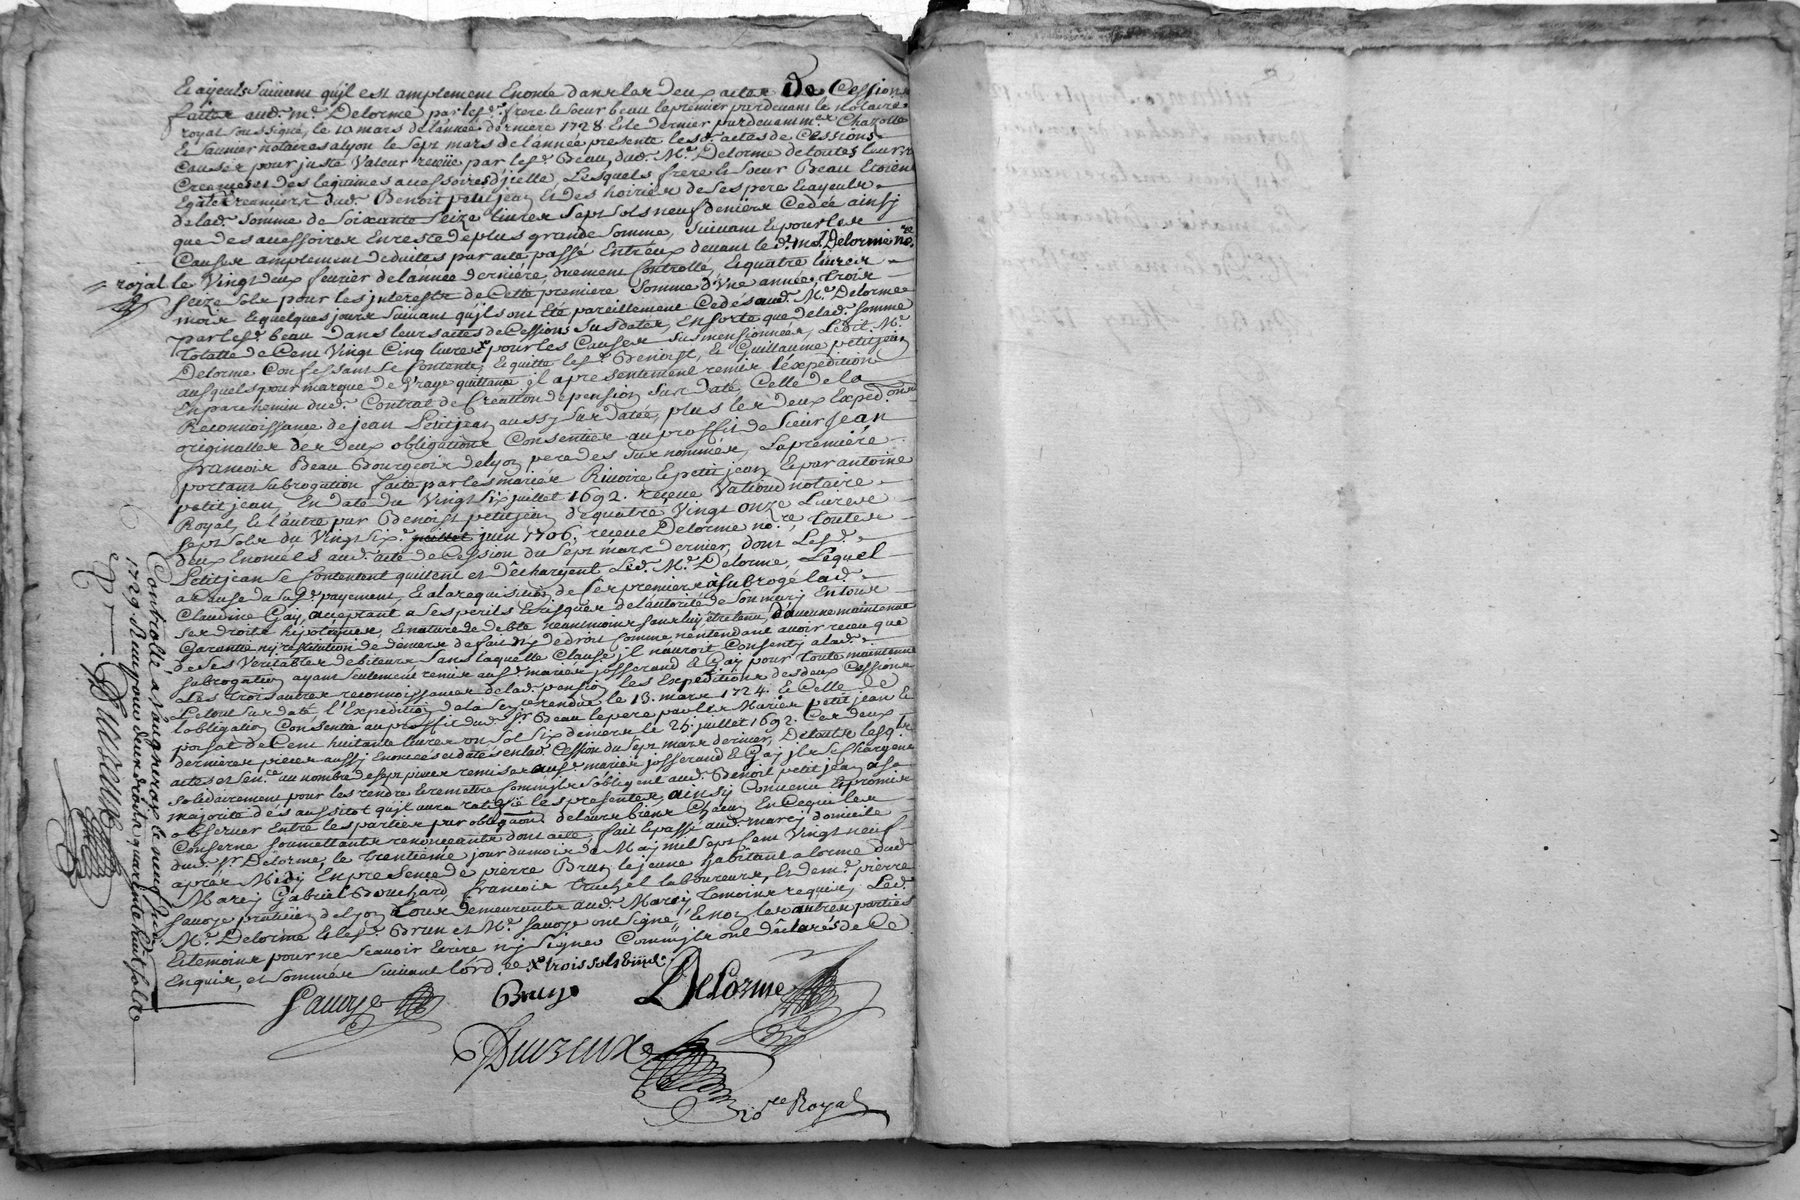 Et ayeuls Suivant quil est amplement Enoncé dans les deux actes De Cessions
faites aud. mr. Delorme par lesd. frere et Soeur beau le premier pardevant le notaire
royal soussigné, le 10 mars de l'année derniere 1728 Et le dernier pardevant mes. Chazotte
Et Saunier notaires a lyon le Sept mars de l'année presente lesd. actes de Cessions
Causés pour juste Valeur receüe par lesd. Beau, dud. Mr. Delorme de toutes leurs
Creances et des legitimes accessoires d'jcelle, Lesquels frere et Soeur Beau Etoient
Creanciers dud. Benoit petitjean Et des hoiries de ses pere Et ayeuls
de lad. Somme de Soixante Seize livres Sept Sols neuf deniers Cedée ainsj
que des accessoires En reste de plus grande Somme, Suivant Et pour les
Causes amplement deduites par acte passé Entr'eux devant led. me. Delorme nore.
= royal le Vingt deux fevrier de l'année derniere, duement Controllé, Et quatre livres
Seize Sols pour les jnterests de Cette premiere Somme d'Vne année trois
mois Et quelques jours Suivant quils ont Eté pareillement Cedés aud. Mr. Delorme
par lesd. beau dans leurs actes de Cessions Susdatés, En sorte que de lad. Somme
totalle de Cent Vingt Cinq livres pour les Causes Susmensionnées, Ledit Mr.
Delorme Confessant Se Contente, Et quitte lesd. Benoist, Et Guillaume petitjean
ausquels pour marque de Vraye quittance jl a presentement remis l'expedition
En parchemin dud. Contrat de Creation de pension Sus daté, Celle de la
Reconnoissance de jean petitjean aussy Sus datée, plus les deux Expedons.
originalles des deux obligations Consenties au proffit de Sieur Jean
francois Beau Bourgeois de lyon pere des Sus nommés, La premiere
portant Subrogation faite par les mariés Rivoire Et petitjean, Et par antoine
petitjean, En date du Vingt Six juillet 1692. receue Vatioud notaire
Royal, Et l'autre par Benoist petitjean de quatre Vingt onze Livres
Sept Sols du Vingt Six. juin 1706. receue Delorme nore., toutes
deux Enoncées aud. acte de Cession du Sept mars dernier, dont Lesd.
Petitjean Se Contentent quittent et dêchargent Led. Mr. Delorme, Lequel
a Cause du Susd. payement, Et a la requisition de Ses premiers à Subrogé lad.
Claudine Gay, acceptant a Ses perils Et risques de l'autorité de Son mary En tous
Ses droits hijpoteques, Et nature de debte neanmoins Sans luy être tenu, d'aucune maintenue
Garantie ny restitution de deniers de fait ny de droit Comme n'entendant avoir receu que
de Ses Veritables debiteurs Sans laquelle Clause jl n'auroit Consenty a lad.
Subrogation ayant Seulement remis ausd. mariés josserand Et Gay pour toute maintenue
Les trois autres reconnoissances de lad. pension les Expeditions des deux Cessions
Le tout Sus daté, l'Expedition de la Sentence rendue le 13. mars 1724. Et Celle de
l'obligation Consentie au proffit dud. Sr. Beau le pere par les Mariés petitjean Et
poisat de Cent huitante livres un Sol Six deniers le 26. juillet 1692. Ces deux
dernieres pieces aussy Enoncées et datées En lad. Cession du Sept mars dernier, De toutes lesqles.
actes et Sence. au nombre de Sept pieces remises ausd. mariés josserand Et Gay jls Se Chargent
Solidairement pour les rendre Et remettre Comme jls S'obligent aud. Benoit petitjean a Sa
majorité dés aussitot qu'jl aura ratiffié les presentes, ainsy Convenu Et promis
observer Entre les parties par obligaon. de leurs biens Chacun En Ce qui les
Conserne Soumettants renonceants dont acte, fait Et passé aud. marcy domicile
dud. Sr. Delorme, le trentiéme jour du mois de May mil Sept Cent Vingt neuf
aprés Midy En presence de pierre Brun le jeune habitant a lorme dud.
Marcy Gabriel Bouchard, francois Truchet laboureurs, Et de me. pierre
Savoye praticien de lyon tous demeurants aud. Marcy temoins requis, Led.
Mr. Delorme Et lesd. Brun et Mr. Savoye ont Signé, Et non les autres parties
Et temoins pour ne Scavoir Ecrire ny Signer Comme jls ont dêclarés de Ce
Enquis, et Sommés Suivant l'ord. ce X trois Sols 8 ds.
Savoye Brun Delorme
Duvreux
nore Royal
Controllé a Vaugneray le neuf juin
1729. Receu pour deux droits quarente huit Sols
Duvreux